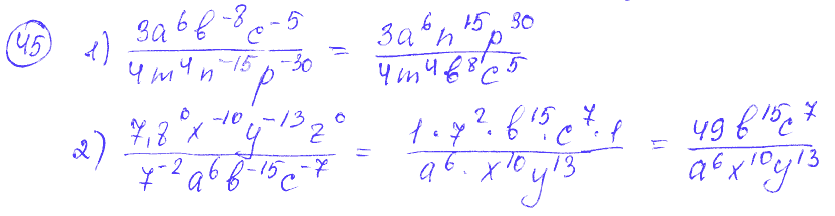 45 1) 3a⁶b⁻⁸c⁻⁵ / 4m⁴n⁻¹⁵p⁻³⁰ = 3a⁶n¹⁵p³⁰ / 4m⁴b⁸c⁵
2) 7,8⁰x⁻¹⁰y⁻¹³z⁰ / 7⁻²a⁶b⁻¹⁵c⁻⁷ = 1·7²·b¹⁵·c⁷·1 / a⁶·x¹⁰y¹³ = 49b¹⁵c⁷ / a⁶x¹⁰y¹³